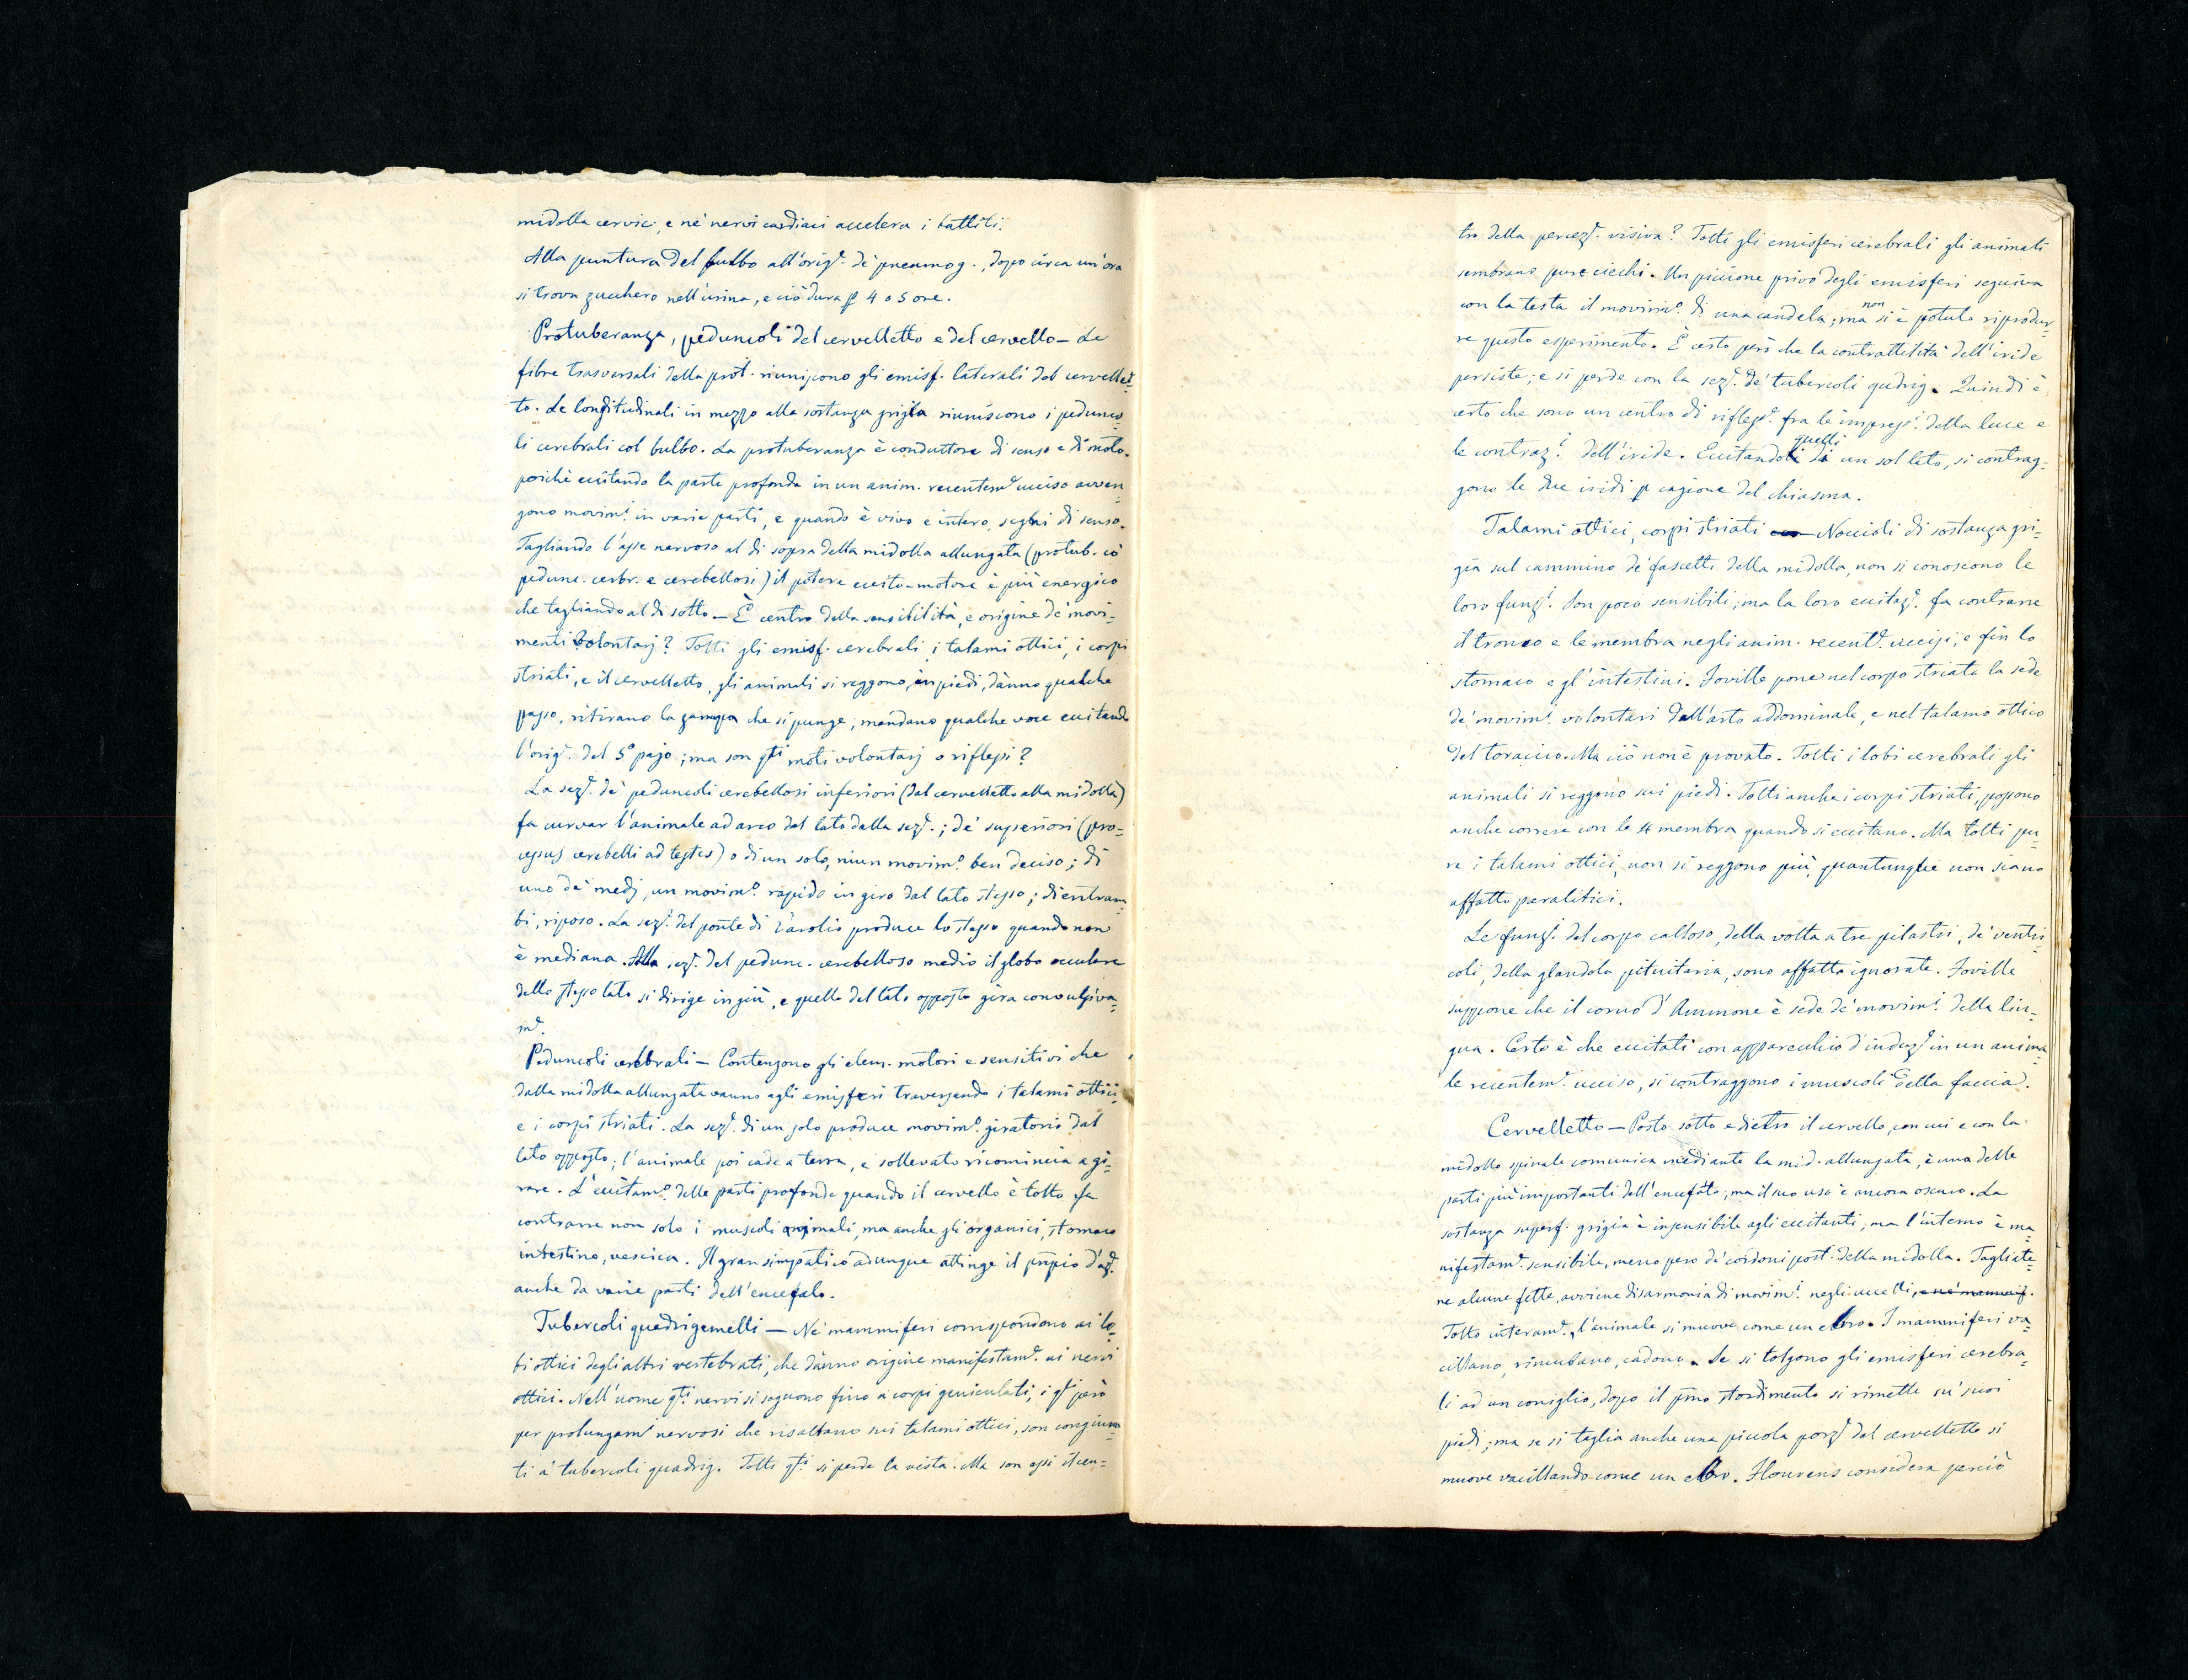 midolla cervic:, e ne' nervi cardiaci accelera i battiti.
Alla puntura del bulbo all'orig.e de' pneumog., dopo circa un'ora
si trova zucchero nell'urina, e ciò dura p 4 o 5 ore.
Protuberanza, peduncoli del cervelletto e del cervello — Le
fibre trasversali della prot. riuniscono gli emisf. laterali del cervellet=
to. Le longitudinali in mezzo alla sostanza grigia riuniscono i pedunco=
li cerebrali col bulbo. La protuberanza è conduttore di senso e di moto,
poichè eccitando la parte profonda in un anim. recentem.e ucciso avven=
gono movim.i in varie parti, e quando è vivo e intero, segni di senso.
Tagliando l'asse nervoso al di sopra della midolla allungata (protub. co'
pedunc. cerbr. e cerebellosi) il potere eccito-motore è più energico
che tagliando al di sotto. — È centro della sensibilità, e origine de' movi=
menti volontarj? Tolti gli emisf. cerebrali, i talami ottici, i corpi
striati, e il cervelletto, gli animali si reggono in piedi, dànno qualche
passo, ritirano la zampa che si punge, mandano qualche voce eccitando
l'orig.e del 5° pajo; ma son q.ti moti volontarj o riflessi?
La sez.e de' peduncoli cerebellosi inferiori (dal cervelletto alla midolla)
fa curvar l'animale ad arco dal lato della sez.e; de' superiori (pro=
cessus cerebelli ad testes) o di un solo, niun movim.o ben deciso; di
uno de' medj, un movim.o rapido in giro dal lato stesso; di entram=
bi, riposo. La sez.e del ponte di Varolio produce lo stesso quando non
è mediana. Alla sez.e del pedunc. cerebelloso medio il globo oculare
dello stesso lato si dirige in giù, e quello del lato opposto gira convulsiva=
m.e
Peduncoli cerebrali — Contengono gli elem. motori e sensitivi che
dalla midolla allungata vanno agli emisferi traversando i talami ottici
e i corpi striati. La sez.e di un solo produce movim.o giratorio dal
lato opposto; l'animale poi cade a terra, e sollevato ricomincia a gi=
rare. L'eccitam.o delle parti profonde quando il cervello è tolto fa
contrarre non solo i muscoli animali, ma anche gli organici, stomaco
intestino, vescica. Il gran simpatico adunque attinge il pnpio d'az.e
anche da varie parti dell'encefalo.
Tubercoli quadrigemelli — Ne' mammiferi corrispondono ai lo=
bi ottici degli altri vertebrati, che dànno origine manifestam.e ai nervi
ottici. Nell'uome q.ti nervi si seguono fino a' corpi geniculati, i q.li però
per prolungam.i nervosi che risaltano sui talami ottici, son congiun=
ti a' tubercoli quadrig. Tolti q.ti si perde la vista. Ma son essi il cen=
tro della percez.e visiva? Tolti gli emisferi cerebrali gli animali
sembrano pure ciechi. Un piccione privo degli emisferi seguiva
con la testa il movim.o di una candela; ma non si è potuto riprodur=
re questo esperimento. È certo però che la contrattilità dell'iride
persiste; e si perde con la sez.e de' tubercoli qudrig. Quindi è
certo che sono un centro di rifless.e fra le impress.i della luce e
le contraz.i dell'iride. Eccitando quelli di un sol lato, si contrag=
gono le due iridi p cagione del chiasma.
Talami ottici, corpi striati — Noccioli di sostanza gri=
gia sul cammino de' fascetti della midolla, non si conoscono le
loro funz.i. Son poco sensibili; ma la loro eccitaz.e fa contrarre
il tronco e le membra negli anim. recent.e uccisi; e fin lo
stomaco e gl'intestini. Foville pone nel corpo striato la sede
de' movim.i volontari dell'arto addominale, e nel talamo ottico
del toracico. Ma ciò non è provato. Tolti i lobi cerebrali gli
animali si reggono sui piedi. Tolti anche i corpi striati, possono
anche correre con le 4 membra quando si eccitano. Ma tolti pu
re i talami ottici, non si reggono più, quantunque non siano
affatto paralitici.
Le funz.i del corpo calloso, della volta a tre pilastri, de' ventri
coli, della glandola pituitaria, sono affatto ignorate. Foville
suppone che il corno d'Ammone è sede de' movim.i della lin=
gua. Certo è che eccitati con apparecchio d'induz.e in un anima=
le recentem.e ucciso, si contraggono i muscoli della faccia.
Cervelletto — Posto sotto e dietro il cervello, con cui e con la
midolla spinale comunica mediante la mid. allungata, è una delle
parti più importanti dell'encefalo; ma il suo uso è ancora oscuro. La
sostanza superf. grigia è insensibile agli eccitanti, ma l'interno è ma=
nifestam.e sensibile, meno però de' cordoni post. della midolla. Togliete=
ne alcune fette, avviene disarmonia di movim.i negli uccelli, e ne' mammif.
Tolto interam.e, l'animale si muove come un ebbro. I mammiferi va=
cillano, rinculano, cadono. Se si tolgono gli emisferi cerebra=
li ad un coniglio, dopo il pmo stordimento si rimette su' suoi
piedi; ma se si taglia anche una piccola porz.e del cervelletto si
muove vacillando come un ebbro. Flourens considera perciò